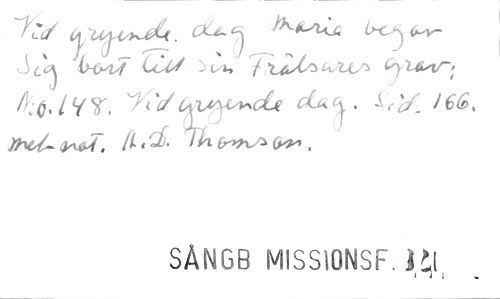 Vid gryende dag Maria begav
sig bort till sin Frälsares grav;
N:o. 148. Vid gryende dag. Sid. 166.
mel-not. H.D. Thomson.
SÅNGB MISSIONSF.